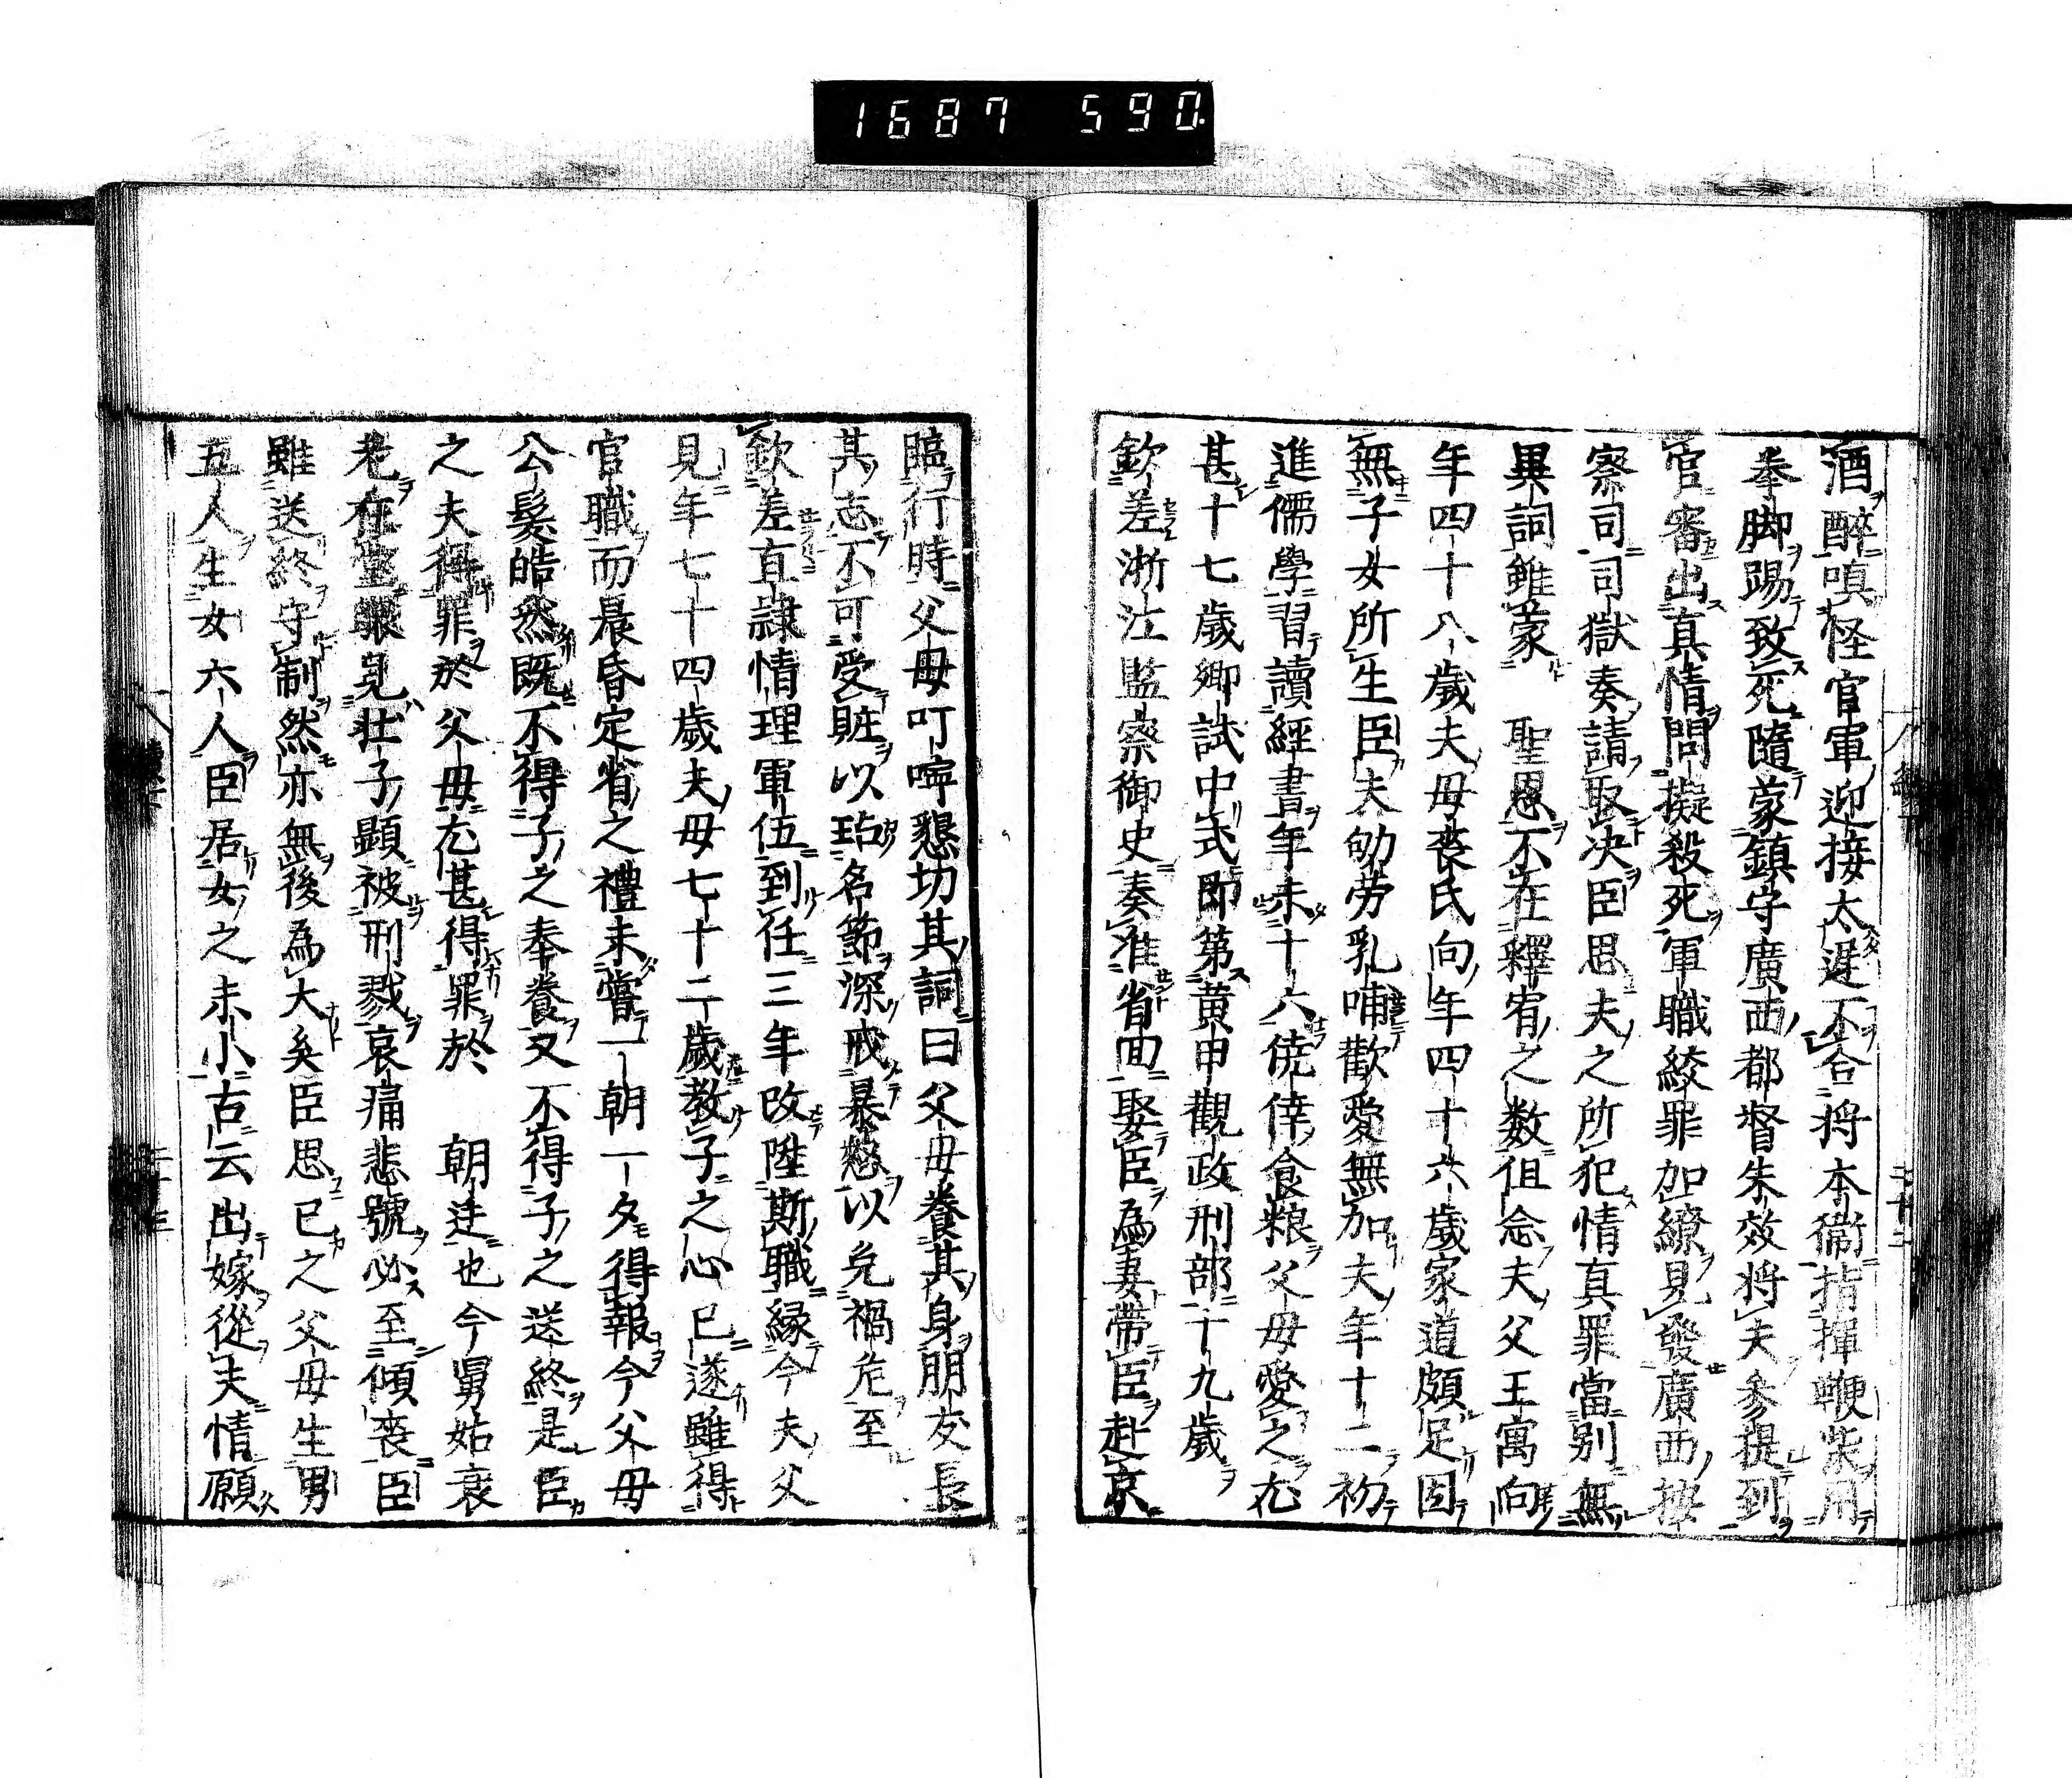 1687 590.
酒醉嗔怪官軍迎接太遲不合将本衞指揮鞭柴用
拳脚踢致死隨蒙鎮守廣西都督朱效将夫參提到
官審出真情問擬殺死軍職絞罪加繚見發廣西按
察司司獄奏請㝡决臣思夫之所犯情真罪當别無
異詞雖蒙　聖恩不在釋宥之数但念夫父王寓向
年四十八歲夫母喪氏向年四十六歲家道頗足因
無子女所生臣夫劬劳乳哺歡愛無加夫年十二初
進儒學習讀經書年未十六僥倖食粮父母愛之尤
甚十七歲鄉試中式即第黃甲觀政刑部十九歲
欽差浙江監察御史奏准省回娶臣為妻帶臣赴京
臨行時父母叮嚀懇切其詞曰父母養其身朋友長
其志不可受賍以玷名節深戒暴怒以免禍危至
欽差直隷情理軍伍到任三年改陞斯職縁今夫父
見年七十四歲夫母七十二歲教子之心已遂雖得
官職而晨昏定省之禮未嘗一朝一夕得報今父母
公髮皓然既不得子之奉養又不得子之送終是臣
之夫得罪於父母尤甚得罪於　朝廷也今舅姑衰
老在堂眼見壮子顕被刑戮哀痛悲號必至傾喪臣
雖送終守制然亦無後為大矣臣思已之父母生男
五人生女六人臣居女之未小古云出嫁從夫情願